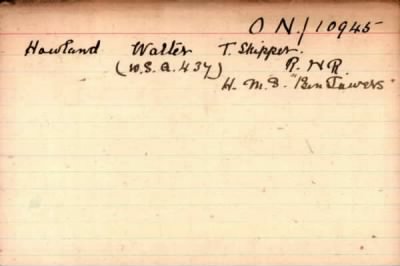 O N / 10945
Howland Walter T. Skipper.
(W.S.A. 437) R. N R.
H. M. S. "Ben Tawers"